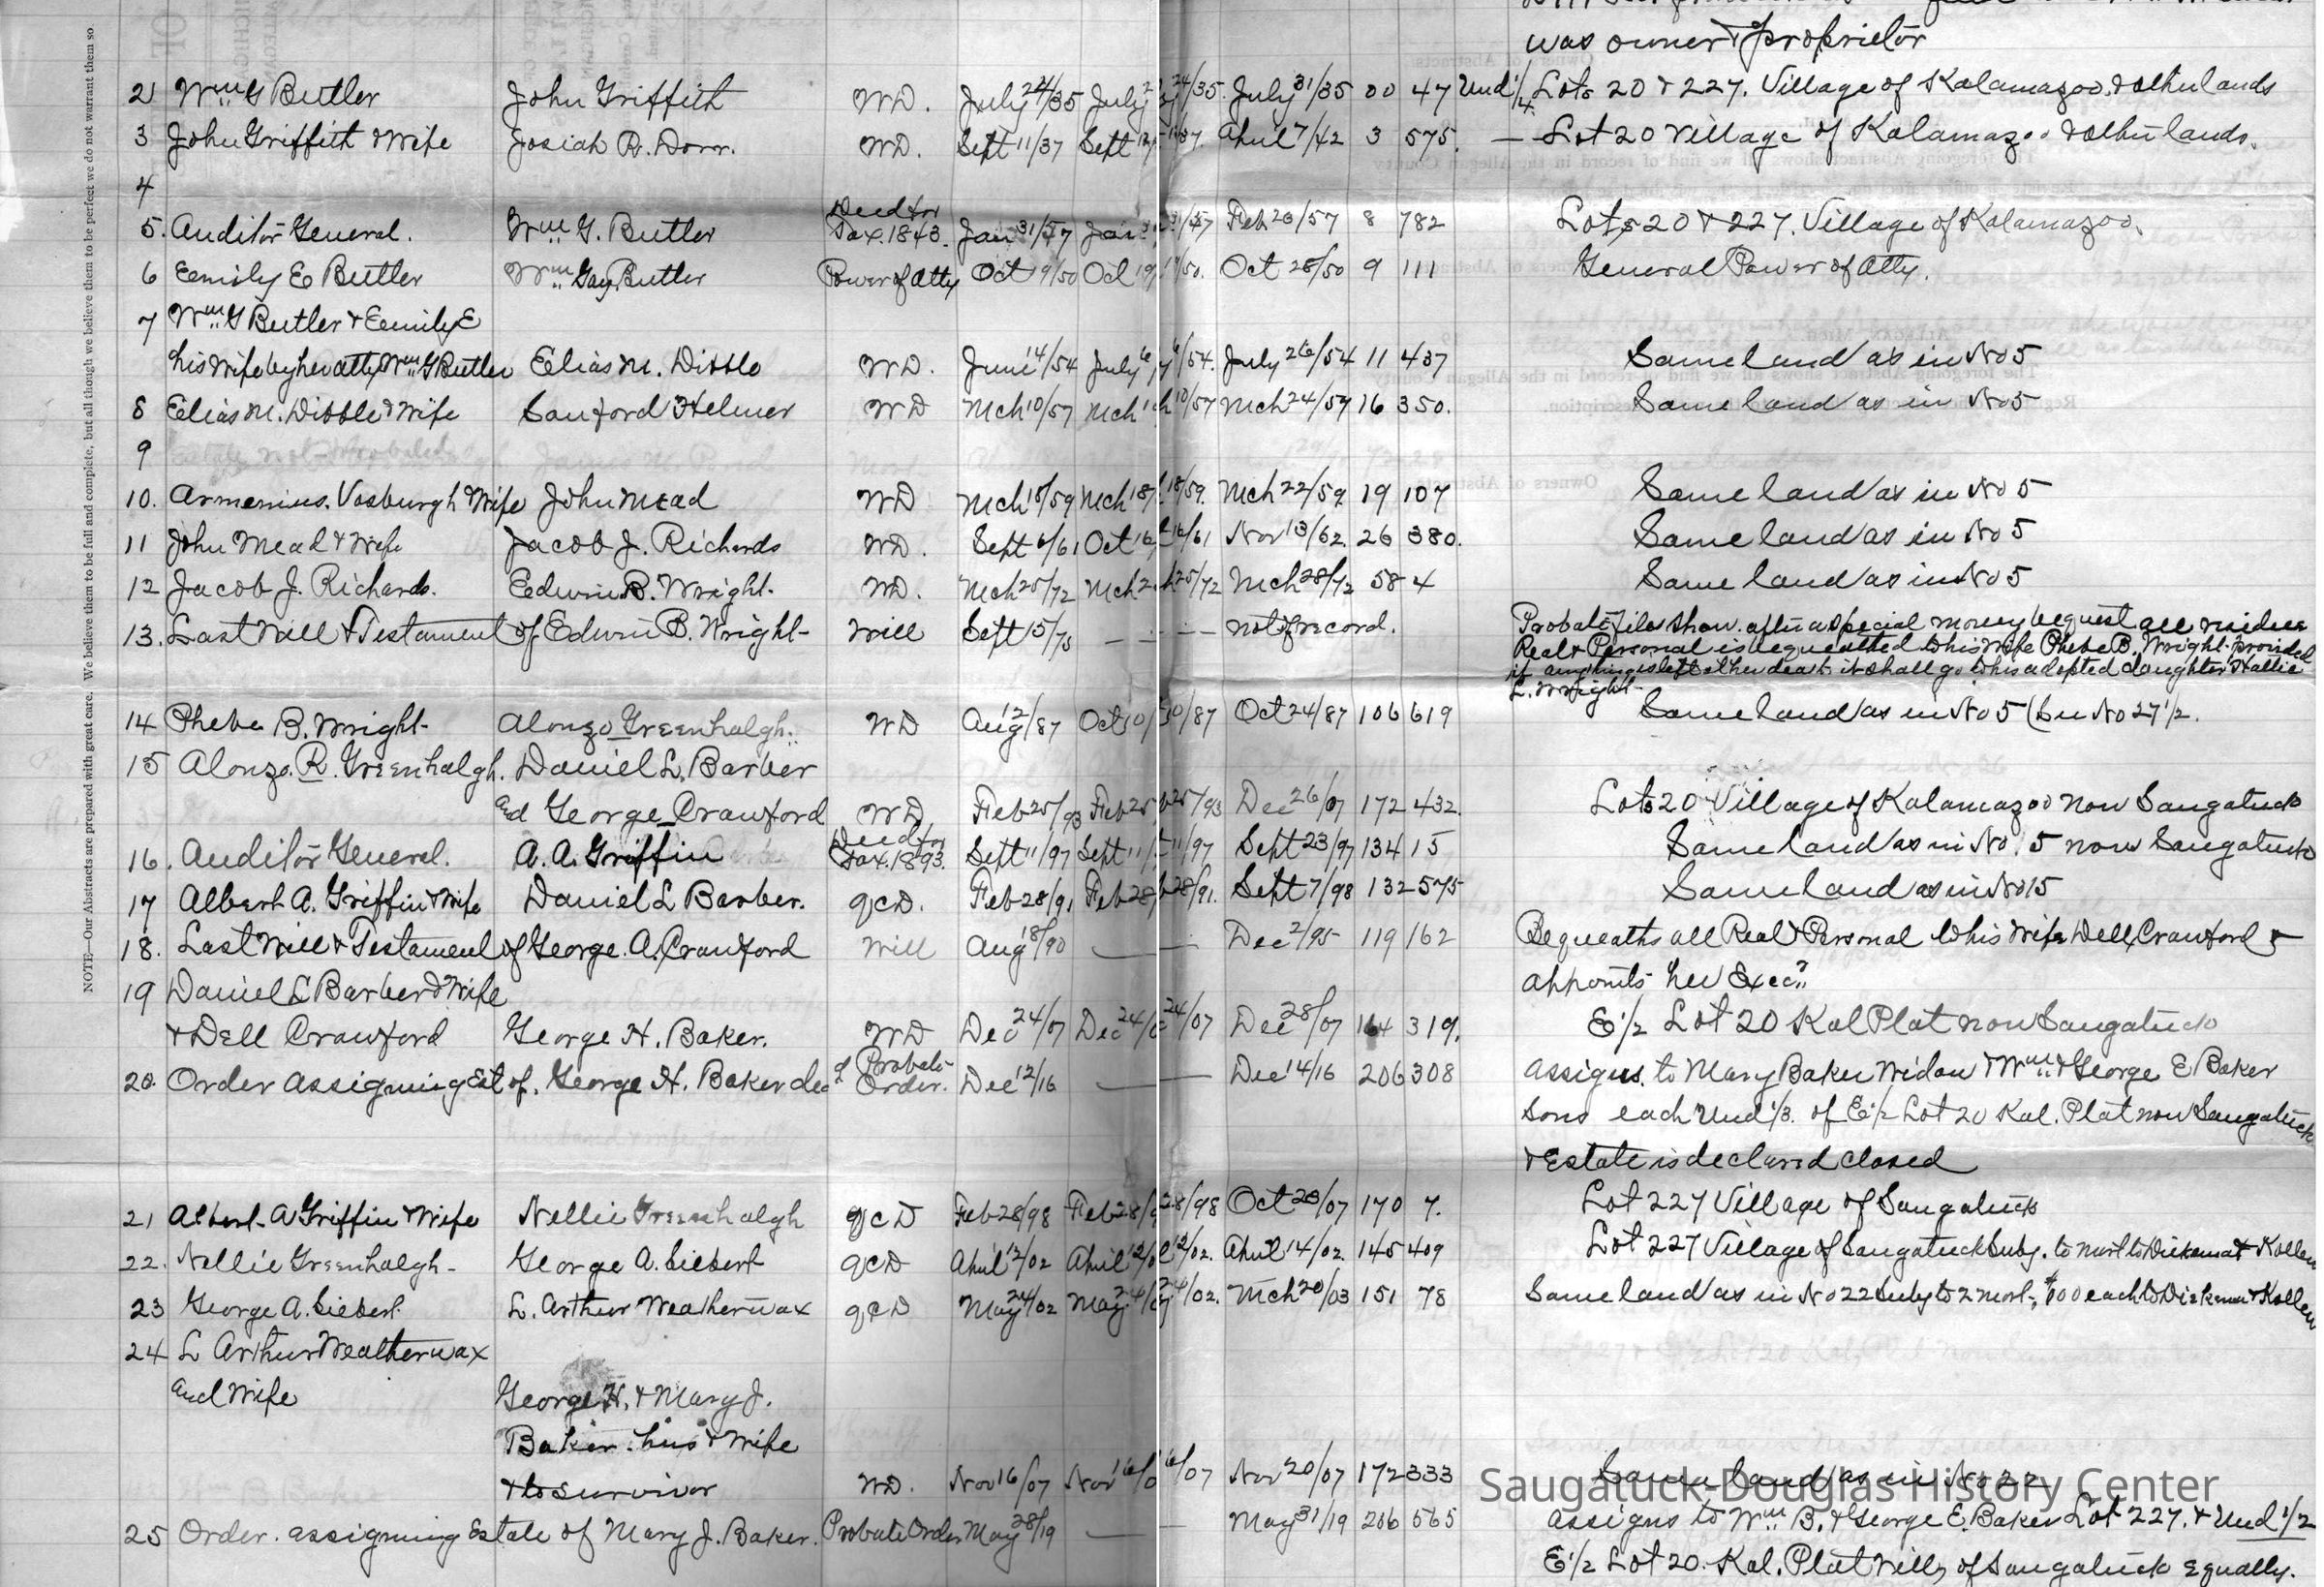 was owner & proprietor
2 Wm G Butler John Griffith WD. July 24/35 July 24/35 July 31/35 00 47 Und 1/4 Lots 20 & 227. Village of Kalamazoo & other lands
3 John Griffith & Wife Josiah R. Dorr. WD. Sept 11/37 Sept April 7/42 3 575. — Lot 20 Village of Kalamazoo & other lands.
4
Deed for
5. Auditor General. Wm G. Butler Tax. 1843. Jan 31/57 Jan 31/57 Feb 20/57 8 782 Lots 20 & 227. Village of Kalamazoo.
6 Emily E Butler Wm Gay Butler Power of Atty Oct 19/50 Oct 19/50. Oct 28/50 9 111 General Power of Atty.
7 Wm G Butler & Emily E
his wife by her atty Wm G Butler Elias M. Dibble WD. June 14/54 July 6/54. July 26/54 11 437 Same land as in No 5
8 Elias M. Dibble & Wife Sanford Helmer WD Mch 10/57 Mch 10/57 Mch 24/57 16 350. Same land as in No 5
9
10. Armenius. Vosburgh & Wife John Mead WD Mch 18/59 Mch 18/59. Mch 22/59 19 107 Same land as in No 5
11 John Mead & Wife Jacob J. Richards WD. Sept 6/61 Oct 16/61 Nov 13/62. 26 380. Same land as in No 5
12 Jacob J. Richards. Edwin B. Wright. WD. Mch 25/72 Mch 25/72 Mch 28/72 58 4 Same land as in No 5
13. Last Will & Testament of Edwin B. Wright Will Sept 15/75 — — — not of record. Probate files show. after a special money bequest all residue
Real & Personal is bequeathed to his wife Phebe B. Wright. provided
if anything is left at her death it shall go to his adopted daughter Hattie
L. Wright
14 Phebe B. Wright Alonzo Greenhalgh. WD Aug 12/87 Oct 10/87 Oct 24/87 106 619 Same land as in No 5 (See No 27 1/2.
15 Alonzo. R. Greenhalgh. Daniel L. Barber
and George Crawford WD Feb 25/93 Feb 25/93 Dec 26/07 172 432. Lots 20 Village of Kalamazoo now Saugatuck
Deed for
16. Auditor General. A. A. Griffin Tax. 1893. Sept 11/97 Sept 11/97 Sept 23/97 134 15 Same land as in No. 5 now Saugatuck
17 Albert A. Griffin & Wife Daniel L Barber. QCD. Feb 28/91 Feb 28/91. Sept 7/98 132 575 Same land as in No 15
18. Last Will & Testament of George. A. Crawford Will Aug 18/90 — — Dec 2/95 119 162 Bequeaths all Real & Personal to his Wife Dell Crawford &
appoints her Exec
19 Daniel L Barber & Wife
& Dell Crawford George H. Baker. WD Dec 24/07 Dec 24/07 Dec 28/07 164 319. E 1/2 Lot 20 Kal Plat now Saugatuck
of Probate
20. Order assigning Est of. George H. Baker dec Order. Dec 12/16 — — Dec 14/16 206 308 assigns. to Mary Baker Widow & Wm & George E Baker
sons each Und 1/3. of E 1/2 Lot 20 Kal. Plat now Saugatuck
& Estate is declared closed
21 Albert A Griffin & Wife Nellie Greenhalgh QCD Feb 28/98 Feb 28/98 Oct 23/07 170 7. Lot 227 Village of Saugatuck
22. Nellie Greenhalgh George A. Siebert QCD April 12/02 April 12/02. April 14/02. 145 409 Lot 227 Village of Saugatuck subj. to mort to Diekema & Kollen
23 George A. Siebert. L. Arthur Weatherwax QCD May 24/02 May 24/02. Mch 20/03 151 78 Same land as in No 22 subj to 2 mort. $100 each to Diekema & Kollen
24 L Arthur Weatherwax
and Wife George H. & Mary J.
Baker. hus & wife
& to survivor WD. Nov 16/07 Nov 16/07 Nov 20/07 172 333 Same land as in No 22
Saugatuck-Douglas History Center
25 Order. assigning Estate of Mary J. Baker. Probate Order May 28/19 — — May 31/19 206 565 assigns to Wm B. & George E. Baker Lot 227. & Und 1/2
E 1/2 Lot 20. Kal. Plat Village of Saugatuck equally.
NOTE—Our Abstracts are prepared with great care. We believe them to be full and complete, but all though we believe them to be perfect we do not warrant them so